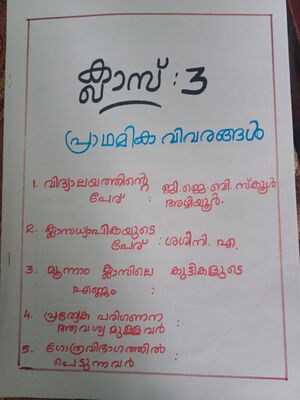 ക്ലാസ് : 3
പ്രാഥമിക വിവരങ്ങൾ
1. വിദ്യാലയത്തിന്റെ പേര് : ജി.ജെ.ബി. സ്കൂൾ
അഴിയൂർ.
2. ക്ലാസധ്യാപികയുടെ
പേര് : ശശിനി. എ.
3. മൂന്നാം ക്ലാസിലെ കുട്ടികളുടെ
എണ്ണം :
4. പ്രത്യേക പരിഗണന
ആവശ്യമുള്ളവർ :
5. ഗോത്രവിഭാഗത്തിൽ
പെട്ടുന്നവർ :